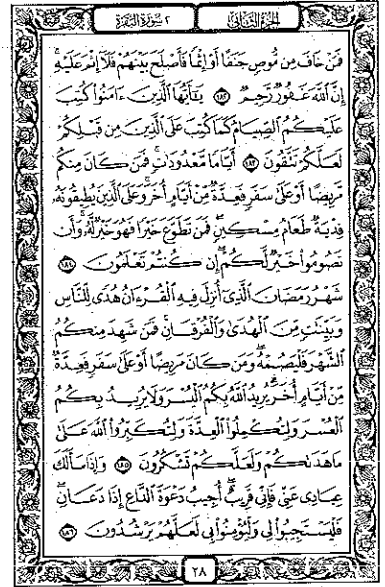 الجزء الثاني
٢ سورة البقرة
فَمَنْ خَافَ مِن مُّوصٍ جَنَفًا أَوْ إِثْمًا فَأَصْلَحَ بَيْنَهُمْ فَلَآ إِثْمَ عَلَيْهِ
إِنَّ ٱللَّهَ غَفُورٌ رَّحِيمٌ ١٨٢ يَٰٓأَيُّهَا ٱلَّذِينَ ءَامَنُوا۟ كُتِبَ
عَلَيْكُمُ ٱلصِّيَامُ كَمَا كُتِبَ عَلَى ٱلَّذِينَ مِن قَبْلِكُمْ
لَعَلَّكُمْ تَتَّقُونَ ١٨٣ أَيَّامًا مَّعْدُودَٰتٍ ۚ فَمَن كَانَ مِنكُم
مَّرِيضًا أَوْ عَلَىٰ سَفَرٍ فَعِدَّةٌ مِّنْ أَيَّامٍ أُخَرَ ۚ وَعَلَى ٱلَّذِينَ يُطِيقُونَهُۥ
فِدْيَةٌ طَعَامُ مِسْكِينٍ ۖ فَمَن تَطَوَّعَ خَيْرًا فَهُوَ خَيْرٌ لَّهُۥ ۚ وَأَن
تَصُومُوا۟ خَيْرٌ لَّكُمْ ۖ إِن كُنتُمْ تَعْلَمُونَ ١٨٤
شَهْرُ رَمَضَانَ ٱلَّذِىٓ أُنزِلَ فِيهِ ٱلْقُرْءَانُ هُدًى لِّلنَّاسِ
وَبَيِّنَٰتٍ مِّنَ ٱلْهُدَىٰ وَٱلْفُرْقَانِ ۚ فَمَن شَهِدَ مِنكُمُ
ٱلشَّهْرَ فَلْيَصُمْهُ ۖ وَمَن كَانَ مَرِيضًا أَوْ عَلَىٰ سَفَرٍ فَعِدَّةٌ
مِّنْ أَيَّامٍ أُخَرَ ۗ يُرِيدُ ٱللَّهُ بِكُمُ ٱلْيُسْرَ وَلَا يُرِيدُ بِكُمُ
ٱلْعُسْرَ وَلِتُكْمِلُوا۟ ٱلْعِدَّةَ وَلِتُكَبِّرُوا۟ ٱللَّهَ عَلَىٰ
مَا هَدَىٰكُمْ وَلَعَلَّكُمْ تَشْكُرُونَ ١٨٥ وَإِذَا سَأَلَكَ
عِبَادِى عَنِّى فَإِنِّى قَرِيبٌ ۖ أُجِيبُ دَعْوَةَ ٱلدَّاعِ إِذَا دَعَانِ ۖ
فَلْيَسْتَجِيبُوا۟ لِى وَلْيُؤْمِنُوا۟ بِى لَعَلَّهُمْ يَرْشُدُونَ ١٨٦
٢٨